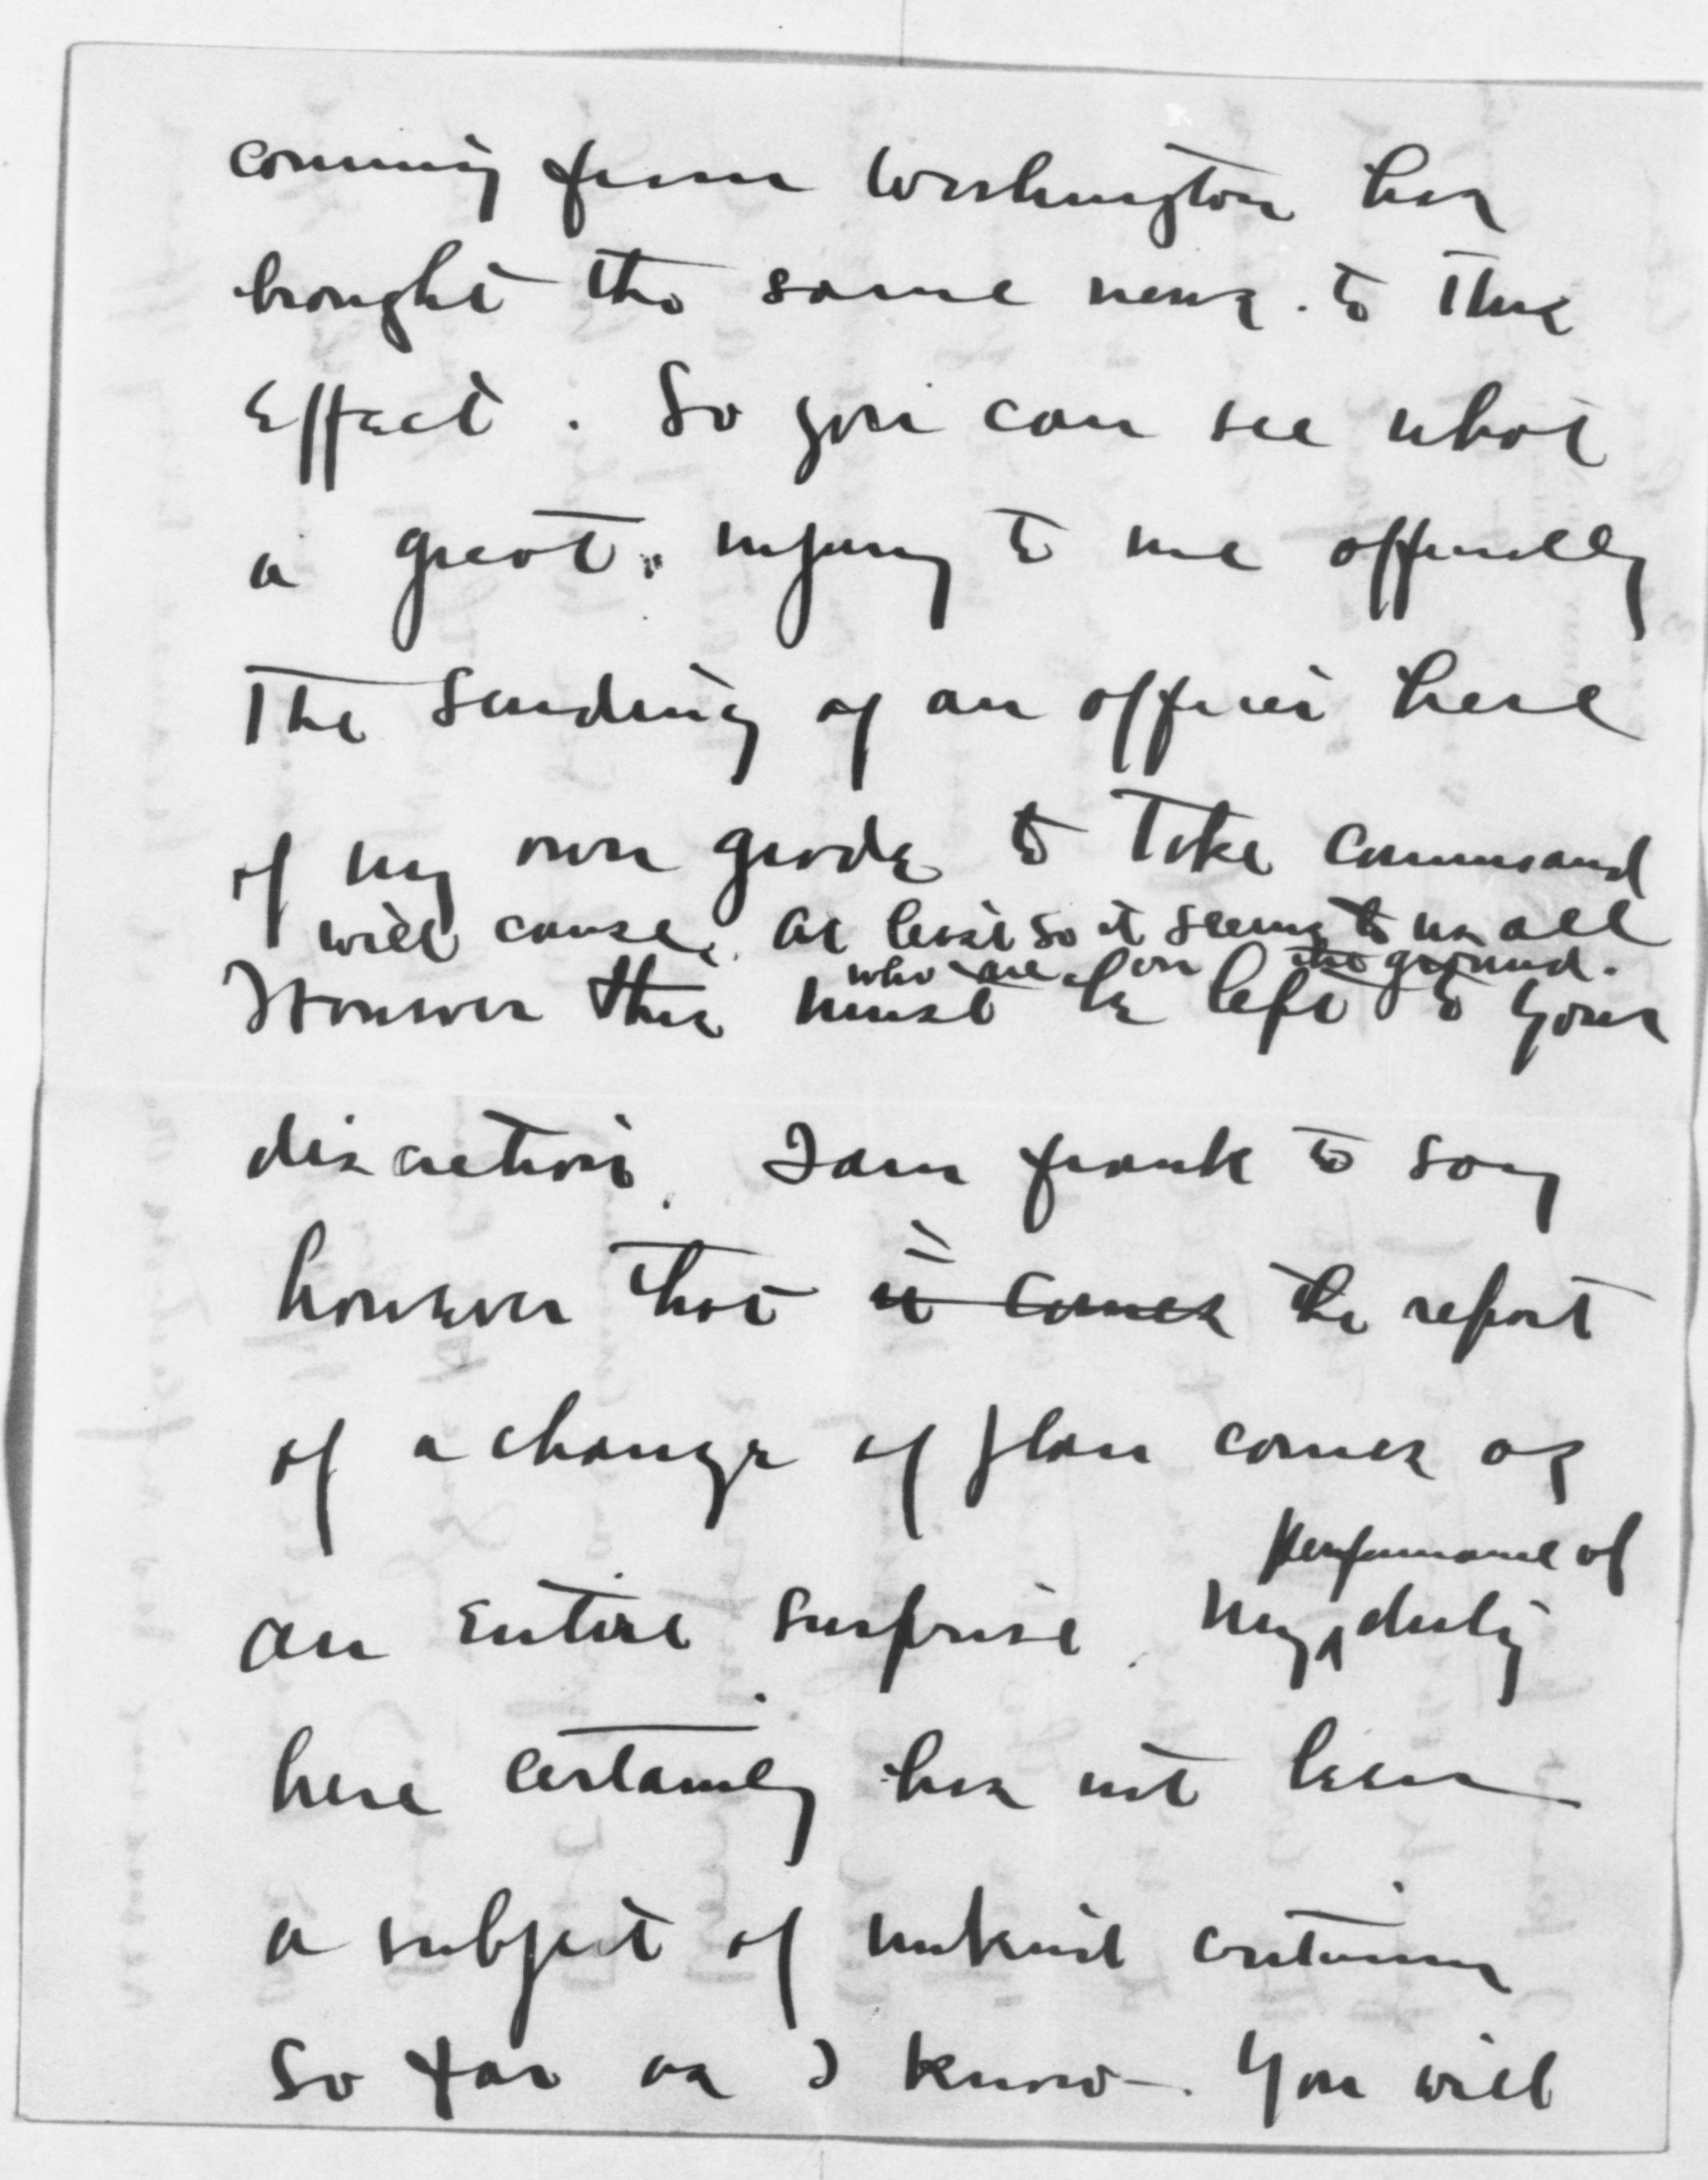 coming from Washington has
brought the same news. to this
Effect. So you can see what
a great injury to me officially
The Sending of an officer here
of my own grade to Take Command
will cause, at least so it seems to us all
who are on the ground.
However this must be left to your
discretion. I am frank to say
however that it comes the report
of a change of plan comes as
performance of
an Entire Surprise. My duty
here certainly has not been
a subject of unkind criticism
So far as I know. You will